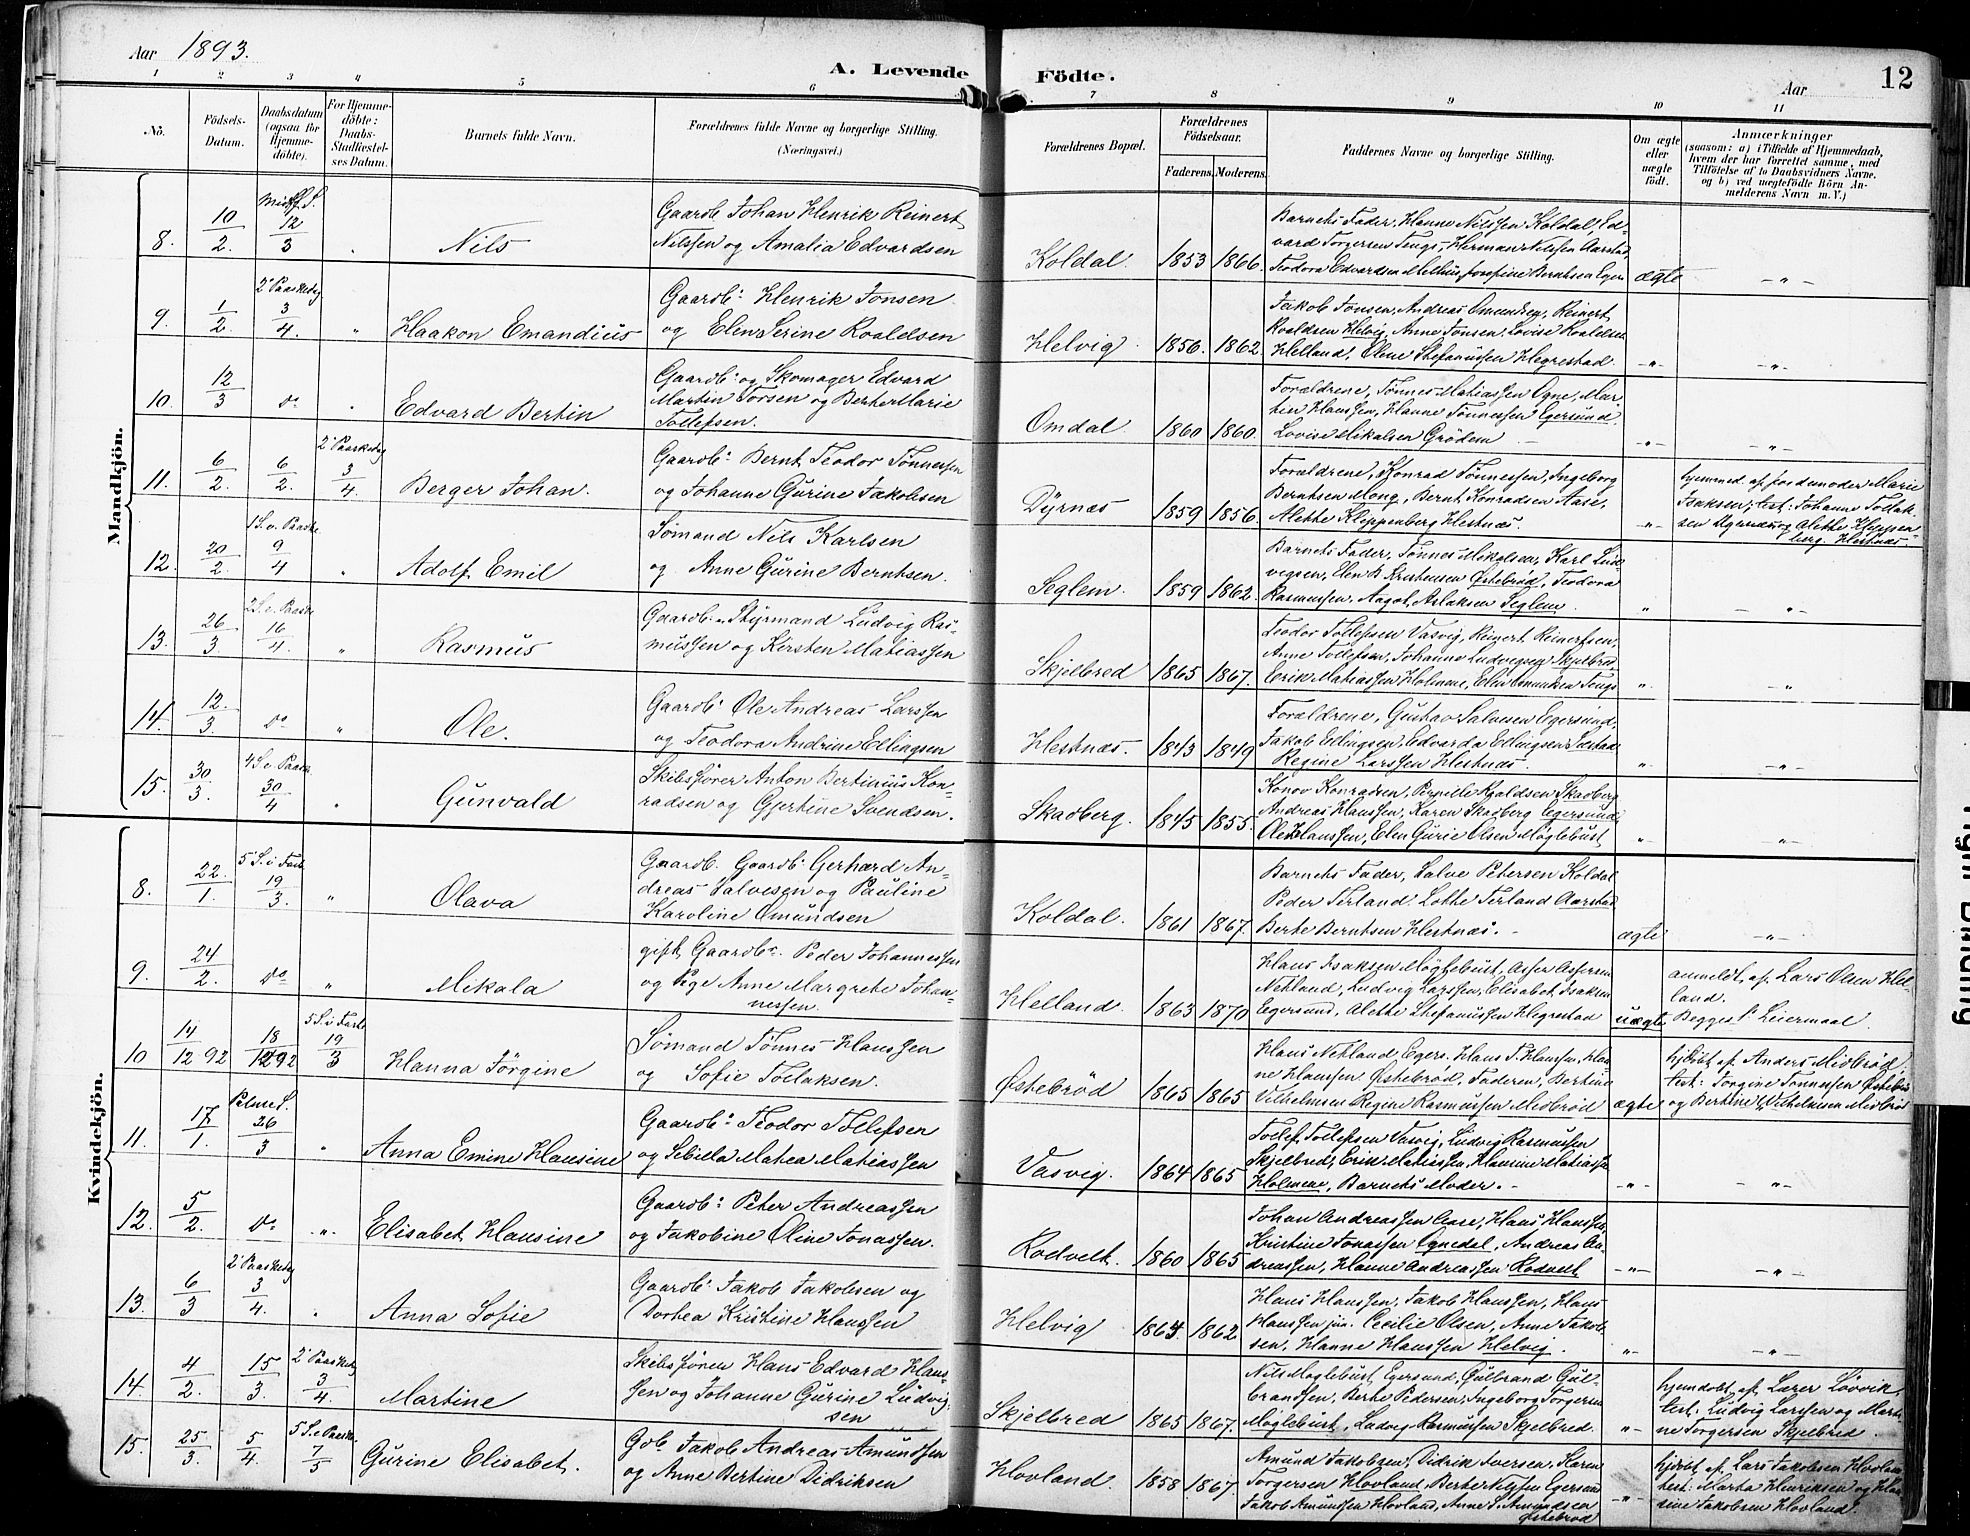 Aar 1893.
A. Levende Födte.
Aar
12
1 2 3 4 5 6 7 8 9 10 11
No.
Födsels-Datum.
Daabsdatum (ogsaa for Hjemme-döbte).
For Hjemme-döbte: Daabs-Stadfæstel-ses Datum.
Barnets fulde Navn.
Forældrenes fulde Navne og borgerlige Stilling.
(Næringsvei.)
Forældrenes Bopæl.
Forældrenes Födselsaar.
Faderens. Moderens.
Faddernes Navne og borgerlige Stilling.
Om ægte eller uægte födt.
Anmærkninger
(saasom: a) i Tilfælde af Hjemmedaab,
hvem der har forrettet samme, med
Tilföielse af to Daabsvidners Navne.
og b) ved uægtefödte Börn An-
melderens Navn m. V.)
Mandkjön.
8. 10/2. 12/3 Nils
Gaardb Johan Henrik Reinert
Nilssen og Amalia Edvardsen
Koldal. 1853 1866.
Barnets Fader, Hanne Nilssen Koldal, Ed-
vard Torgersen Tengs, Herman Nilssen Aarstad
Teodora Edvardsen Melhus, Josefine Berntsen Egers
ægte -"-
9. 1/2. 2' Paaskedag 3/4. " Haakon Emandius
Gaardb: Henrik Jonsen
og Elen Serine Roaldsen
Helvig. 1856. 1862.
Jakob Jonsen, Andreas Omundsen, Reinert
Roaldsen Helvig, Anne Jonsen, Lovise Roaldsen
Helland, Elene Stefanussen Hegrestad.
-"- -"-
10. 12/3 do Edvard Bertin
Gaardb: og Skomager Edvard
Martin Torsen og Berte Marie
Tollefsen.
Omdal. 1860 1860.
Forældrene, Tønnes Matiassen Ogne, Mar-
tin Hanssen, Hanne Tønnessen Egersund.
Lovise Mikalsen Grödem
-"- -"-
11. 6/2. 6/2. 2' Paaskedag 3/4. Berger Johan.
Gaardb: Bernt Teodor Tønnessen
og Johanne Gurine Jakobsen
Dyrnæs 1859 1856.
Forældrene, Konrad Tønnessen, Ingeborg
Berntsen Mong, Bernt Konradsen Aase,
Alette Kleppenberg Hestnæs.
-"-
hjemmed. af jordemoder Marie
Isaksen; test: Johanne Tollak-
sen Dyrnæs og Alette Kleppen-
berg Hestnæs.
12. 20/2. 1 S. e. Paaske 9/4 Adolf Emil
Sømand Nils Karlsen
og Anne Gurine Berntsen.
Seglem. 1859 1862.
Barnets Fader, Tønnes Mikalsen, Karl Lud-
vigsen, Elen B. Kristensen Østebrød, Teodora
Rasmussen, Aagot Aslaksen Seglem.
" -"-
13. 26/3 2 S. e. Paaske 16/4. " Rasmus
Gaardb: Styrmand Ludvig Ras-
mussen og Kirsten Matiassen
Skjelbred 1865 1867.
Teodor Tollefsen Vasvig, Reinert Reinertsen,
Anne Tollefsen, Johanne Ludvigsen Skjelbred,
Erik Matiassen Holmene, Elen Omundsen Tengs
" -"-
14. 12./3. do " Ole.
Gaardb: Ole Andreas Larssen
og Teodora Andrine Ellingsen
Hestnæs. 1843 1849
Forældrene, Gustav Salvesen Egersund,
Jakob Ellingsen, Edvarda Ellingsen
Regine Larssen Hestnæs.
" -"-
15. 30/3. 4 S. e. Paask. 30/4 Gunvald
Skibsfører Anton Bertinius Kon-
radsen og Gjertine Svendsen.
Skadberg. 1845 1855.
Konov Konradsen, Pernille Roaldsen Skadberg
Andreas Hanssen, Karen Skadberg Egersund,
Ole Hanssen, Elen Gurie Olsen Møglebust
" -"-
Kvindekjön.
8. 22./1. 5 S. i Faste 19/3. " Olava
Gaardb. Gaardb: Gerhard An-
dreas Salvesen og Pauline
Karoline Omundsen
Koldal. 1861 1867.
Barnets Fader, Salve Petersen Koldal
Peder Terland. Lotte Terland Aarstad
Berte Berntsen Hestnæs.
ægte -"-
9. 24/2. do " Mikala
gift Gaardbr. Peder Johannessen
og Pige Anne Margrete Johan-
nessen.
Helland. 1863 1870
Hans Isaksen Møglebust, Asser Assersen
Netland, Ludvig Larssen, Elisabet Isaksen
Egersund, Alette Stefanussen Hegrestad
uægte
anmeldt af Lars Olsen Hel-
land.
Begges 1' Leiermaal.
10 14/12 92 18/12 92 5 S. i Faste 19/3 Hanna Jörgine
Sømand Tønnes Hanssen
og Sofie Tollaksen.
Østebrød 1865 1865
Hans Netland, Egers. Hans T. Hanssen, Han-
ne Hanssen Østebrød, Faderen, Bertine
Vilhelmsen, Regine Rasmussen Midbrød
ægte
hjdöbt af Anders Midbrød,
test: Jorgine Tønnessen Østebrød
og Bertine Vilhelmsen Midbrød
11. 17/1. Palmes. 26/3 Anna Emine Hansine
Gaardb: Teodor Tollefsen
og Sebilla Matea Matiassen
Vasvig. 1864 1865
Tollef Tollefsen Vasvig, Ludvig Rasmussen
Skjelbred, Erik Matiassen, Hansine Matiassen
Holmene, Barnets Moder.
-"- -"-
12. 5/2. do " Elisabet Hansine
Gaardb: Peter Andreassen
og Jakobine Oline Jonassen.
Rodvelt. 1860 1865
Johan Andreassen Aase, Hans Hanssen
Kristine Jonassen Ognedal, Andreas An-
dreassen, Hanne Andreassen Rodvelt
-"- -"-
13. 6/3 2' Paaskedag 3/4. Anna Sofie
Gaardb: Jakob Jakobsen og
Dorthea Kristine Hanssen
Helvig 1864. 1862
Hans Hanssen, Jakob Hanssen, Hans
Hanssen jun. Cecilie Olsen, Anne Jakob-
sen, Hanne Hanssen Helvig.
" -"-
14. 4/2. 15/3. 2' Paaskedag 3/4. Martine
Skibsføren Hans Edvard Hans-
sen og Johanne Gurine Ludvig-
sen
Skjelbred 1865 1867.
Nils Møglebust Egersund, Gulbrand Gul-
brandsen, Berte Pedersen, Ingeborg Torgersen
Møglebust, Ludvig Rasmussen Skjelbred.
"
hjemdöbt af Lazer Løvvik
test: Ludvig Larssen og Marti-
ne Torgersen Skjelbred.
15. 25/3. 5/4. 5 S. e Paaske. 7/5 Gurine Elisabet.
Gdb Jakob Andreas Amundsen
og Anne Bertine Didriksen
Hovland. 1858 1867.
Amund Jakobsen, Didrik Iversen, Karen
Torgersen Hovland, Berte Nilsen Egersund
Jakob Amundsen Hovland, Anne S. Amundsen
Østebrød
-"-
hjdöbt af Lars Jakobsen Hovland
test: Marta Henriksen og Han-
sine Jakobsen Hovland.